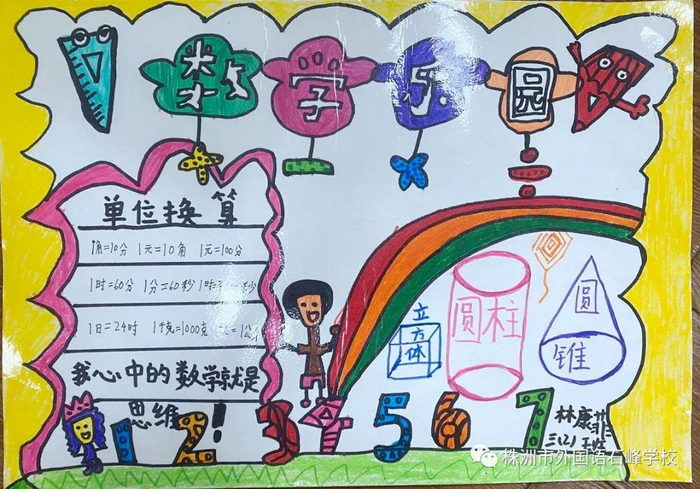 数字乐园
单位换算
1角=10分 1元=10角 1元=100分
1时=60分 1分=60秒
1日=24时 1千克=1000克
我心中的数学就是
思维!
立方体
圆柱
圆锥
1 2 3 4 5 6 7
林康菲
三(2)班
株洲市外国语石峰学校